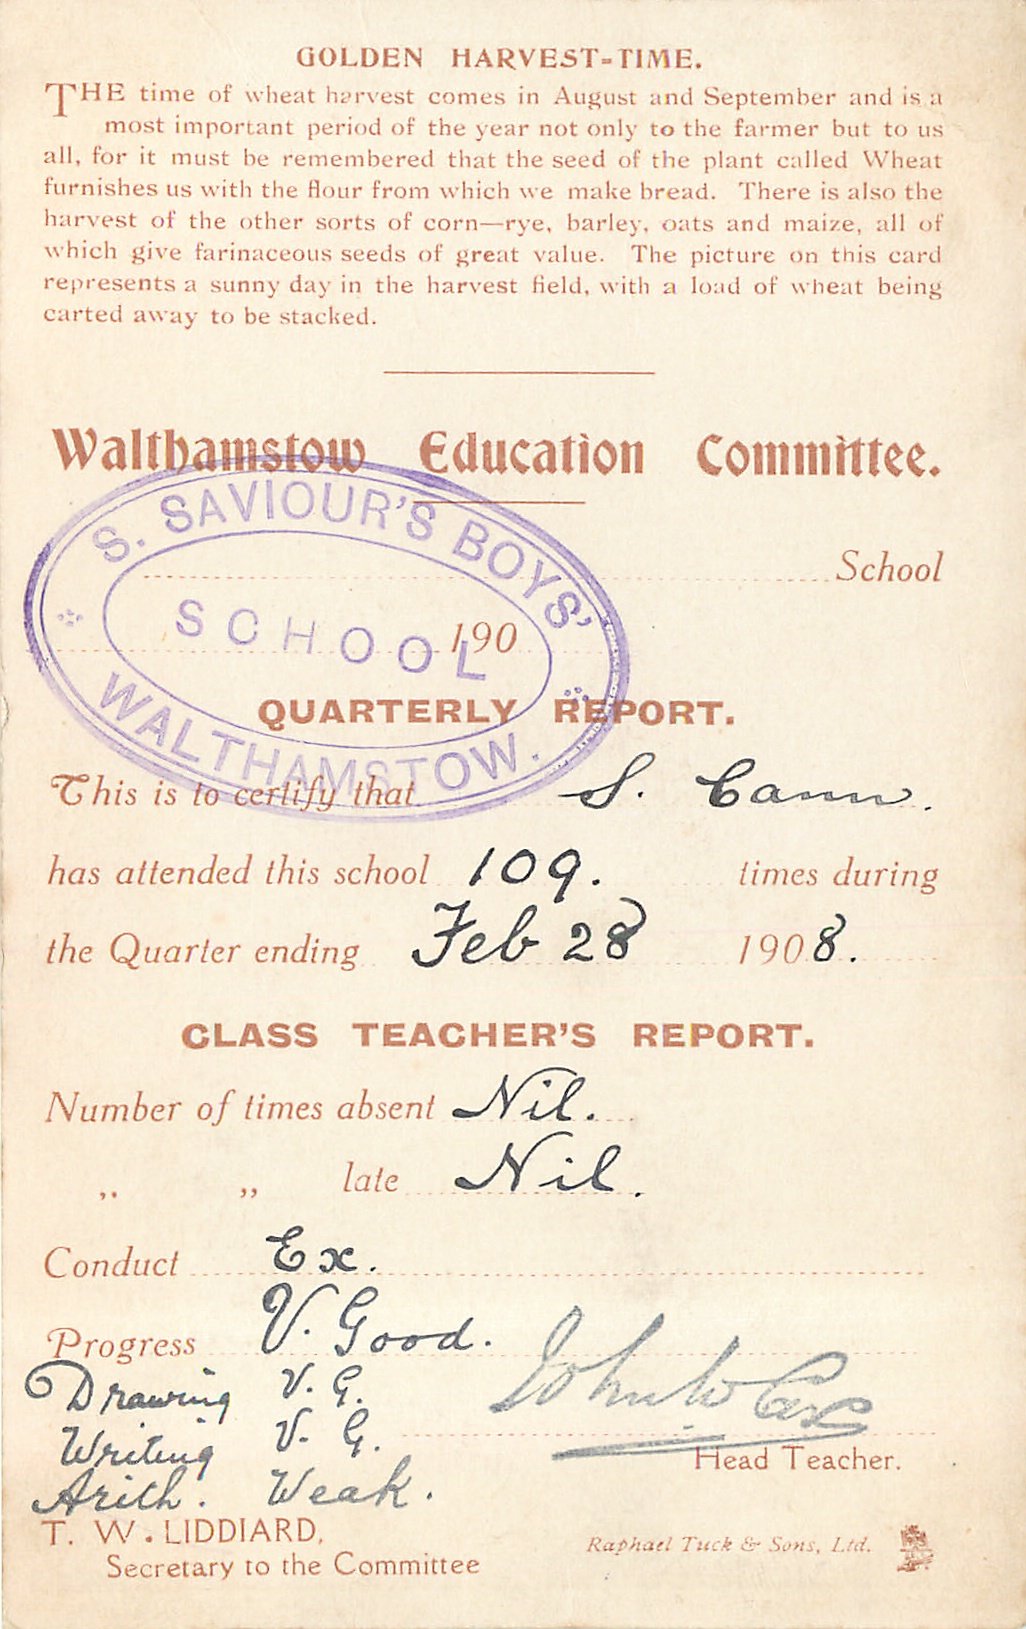 GOLDEN HARVEST-TIME.
THE time of wheat harvest comes in August and September and is a
most important period of the year not only to the farmer but to us
all, for it must be remembered that the seed of the plant called Wheat
furnishes us with the flour from which we make bread. There is also the
harvest of the other sorts of corn—rye, barley, oats and maize, all of
which give farinaceous seeds of great value. The picture on this card
represents a sunny day in the harvest field, with a load of wheat being
carted away to be stacked.
Walthamstow Education Committee.
S. SAVIOUR'S BOYS'
School
SCHOOL
190
WALTHAMSTOW.
QUARTERLY REPORT.
This is to certify that S. Cann.
has attended this school 109. times during
the Quarter ending Feb 28 1908.
CLASS TEACHER'S REPORT.
Number of times absent Nil.
,, ,, late Nil.
Conduct Ex.
Progress V. Good.
Drawing V. G.
Writing V. G.
John W
Head Teacher.
Arith. Weak.
T. W. LIDDIARD,
Secretary to the Committee
Raphael Tuck & Sons, Ltd.